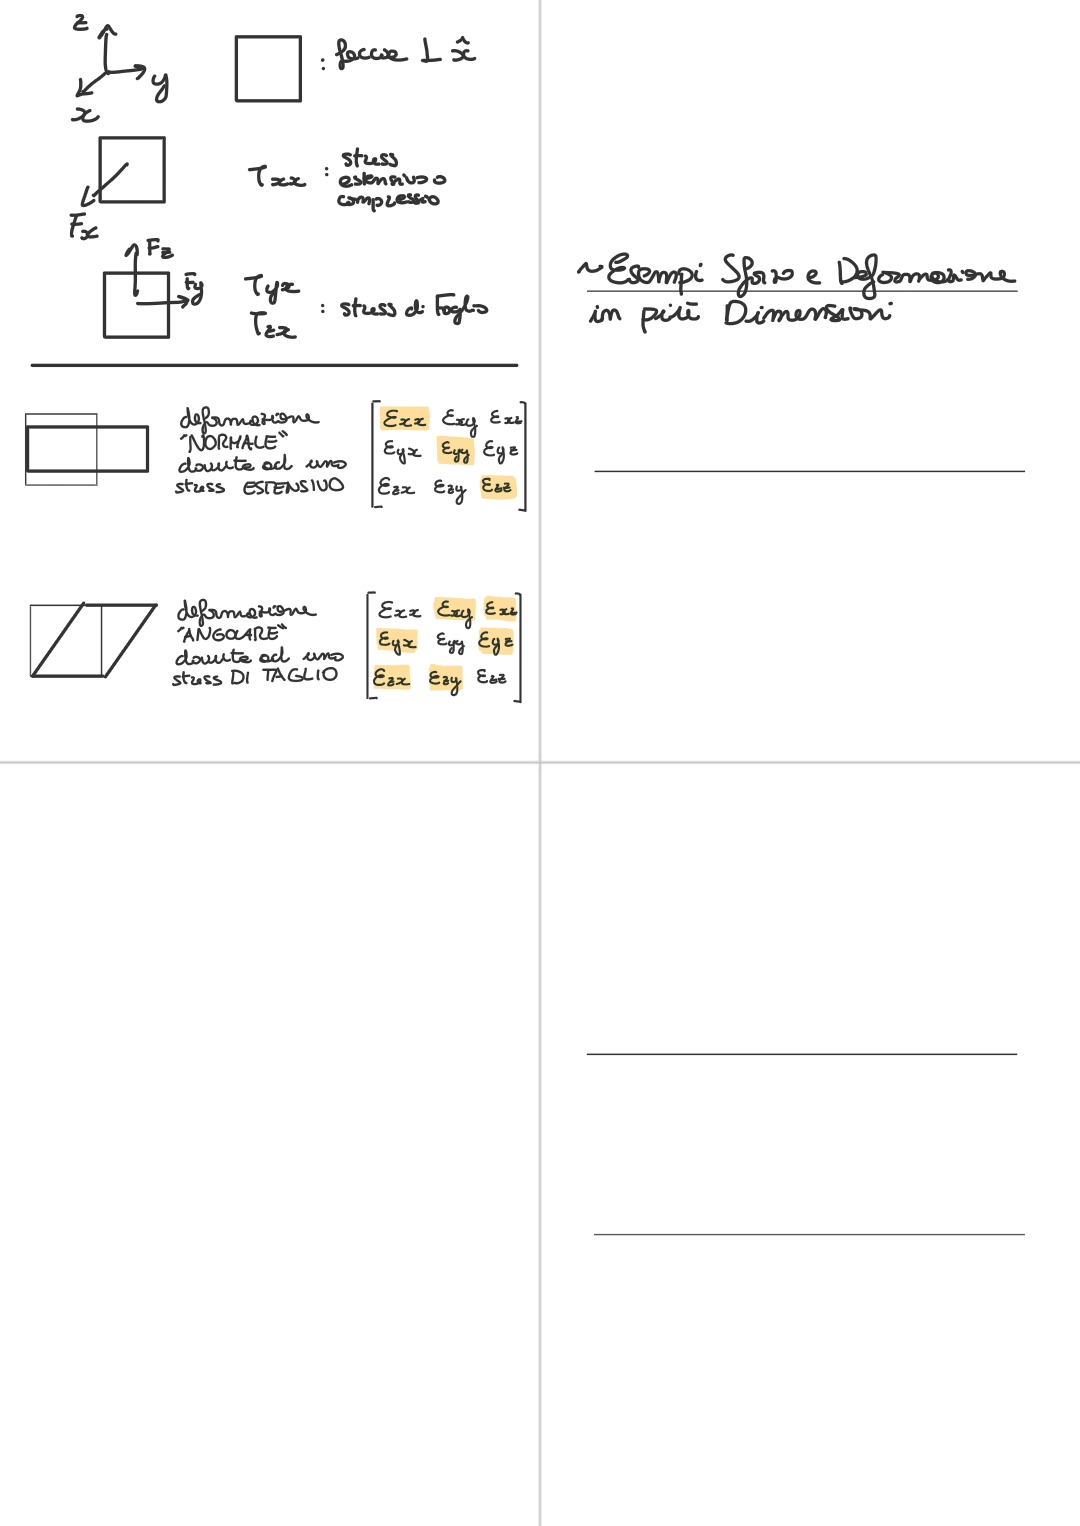 z
y
x
: faccia ⊥ x̂
Fx
Txx : stress
estensivo o
compressivo
Fz
Fy
Tyx
Tzx
: stress di Taglio
deformazione
"NORMALE"
dovute ad uno
stress ESTENSIVO
εxx εxy εxz
εyx εyy εyz
εzx εzy εzz
deformazione
"ANGOLARE"
dovute ad uno
stress DI TAGLIO
εxx εxy εxz
εyx εyy εyz
εzx εzy εzz
~ Esempi Sforzo e Deformazione
in più Dimensioni